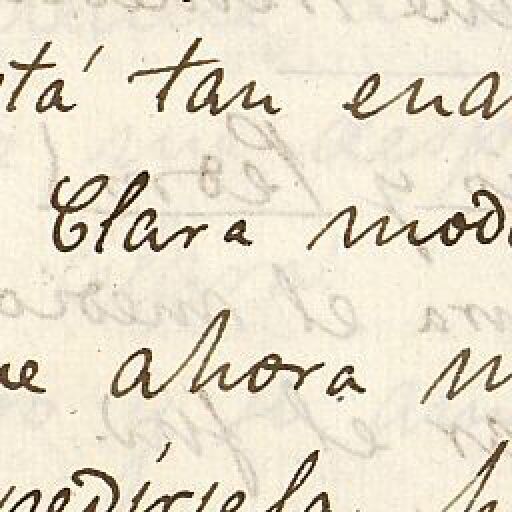 tá tan ena
Clara mod
ue ahora m
pedírsela. h